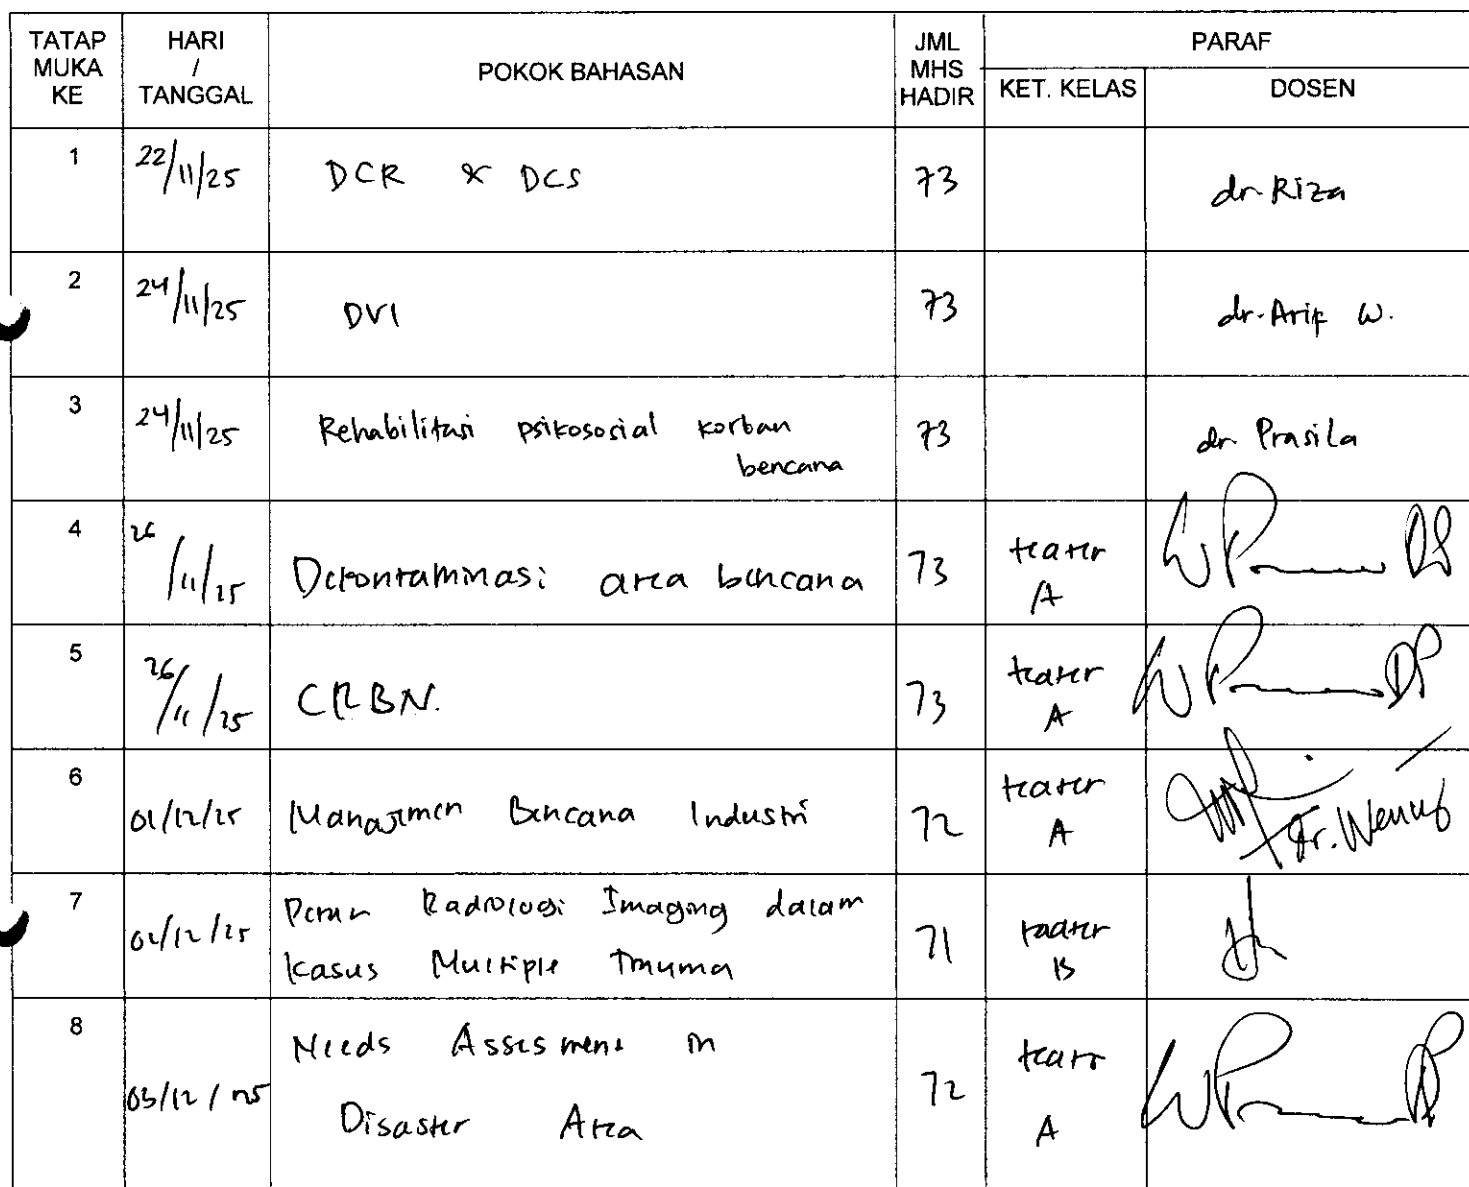 TATAP MUKA KE HARI / TANGGAL POKOK BAHASAN JML MHS HADIR PARAF
KET. KELAS DOSEN
1 22/11/25 DCR & DCS 73 dr. Riza
2 24/11/25 DVI 73 dr. Arif W.
3 24/11/25 Rehabilitasi psikososial korban
bencana 73 dr Prasila
4 26/11/25 Dekontaminasi area bencana 73 teater
A
5 26/11/25 CRBN. 73 teater
A
6 01/12/25 Manajemen Bencana Industri 72 teater
A dr. Wenny
7 02/12/25 Peran Radiologi Imaging dalam
kasus Multiple Trauma 71 teater
B
8 03/12/25 Needs Assesment in
Disaster Area 72 teater
A